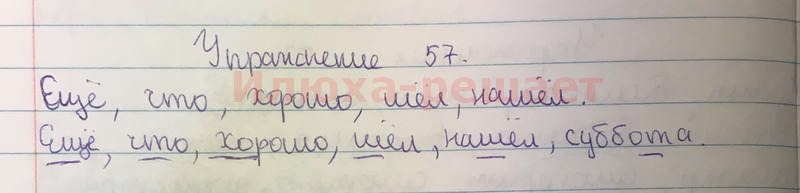 Упражнение 57.
Илюха-решает
Ещё, что, хорошо, шёл, нашёл.
Ещё, что, хорошо, шёл, нашёл, суббота.